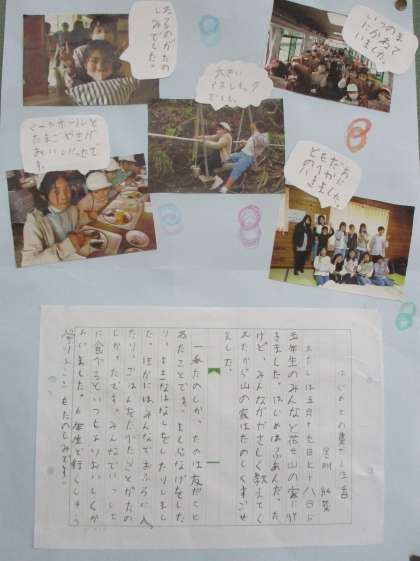 ねるのがたの
しみでした。
いつのま
にかねて
いました。
大きい
アスレチック
でした。
ミートボールと
たまごやきが
おいしかったで
す。
ともだち
のりがに
いきました。
はじめての
わたしは五月十七日と十八日に
五年生のみんなと花せ山の家に行
きました。はじめはふあんだった
けど、みんながやさしく教えてく
れたから山の家はたのしくすごせ
ました。
一番たのしかったのは友だちと
ねたことです。まくらなげをした
り、はなしをしたりしまし
た。ほかにはみんなでおふろに入っ
たり、ごはんをたべたことがたの
しかったです。みんなでいっしょ
に食べるといつもよりおいしくかん
じました。六年生で行くしゅう
学りょこうもたのしみです。